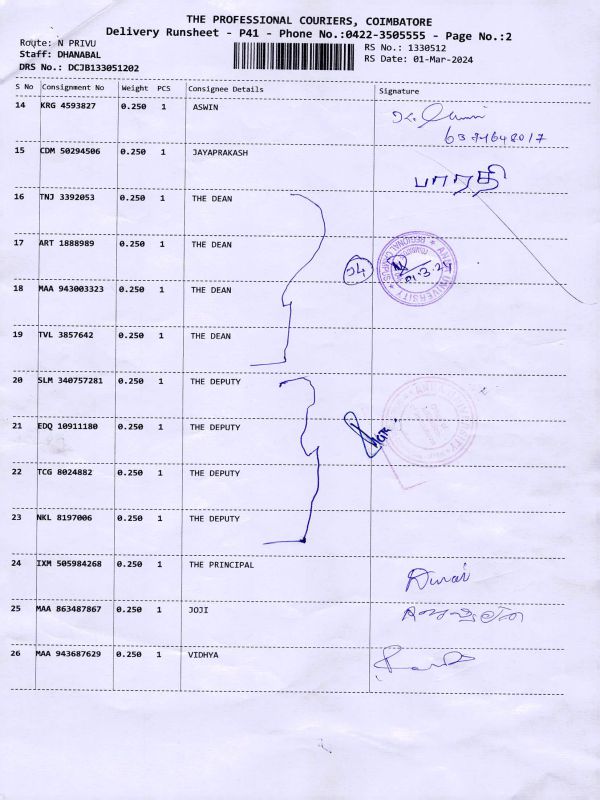 THE PROFESSIONAL COURIERS, COIMBATORE
Delivery Runsheet - P41 - Phone No.:0422-3505555 - Page No.:2
Route: N PRIVU
Staff: DHANABAL
DRS No.: DCJB133051202
RS No.: 1330512
RS Date: 01-Mar-2024
S No Consignment No Weight PCS Consignee Details Signature
14 KRG 4593827 0.250 1 ASWIN
15 CDM 50294506 0.250 1 JAYAPRAKASH
பாரதி
16 TNJ 3392053 0.250 1 THE DEAN
17 ART 1888989 0.250 1 THE DEAN
04
01.3.24
ANNA UNIVERSITY
18 MAA 943003323 0.250 1 THE DEAN
19 TVL 3857642 0.250 1 THE DEAN
20 SLM 340757281 0.250 1 THE DEPUTY
21 EDQ 10911180 0.250 1 THE DEPUTY
22 TCG 8024882 0.250 1 THE DEPUTY
23 NKL 8197006 0.250 1 THE DEPUTY
24 IXM 505984268 0.250 1 THE PRINCIPAL
25 MAA 863487867 0.250 1 JOJI
26 MAA 943687629 0.250 1 VIDHYA